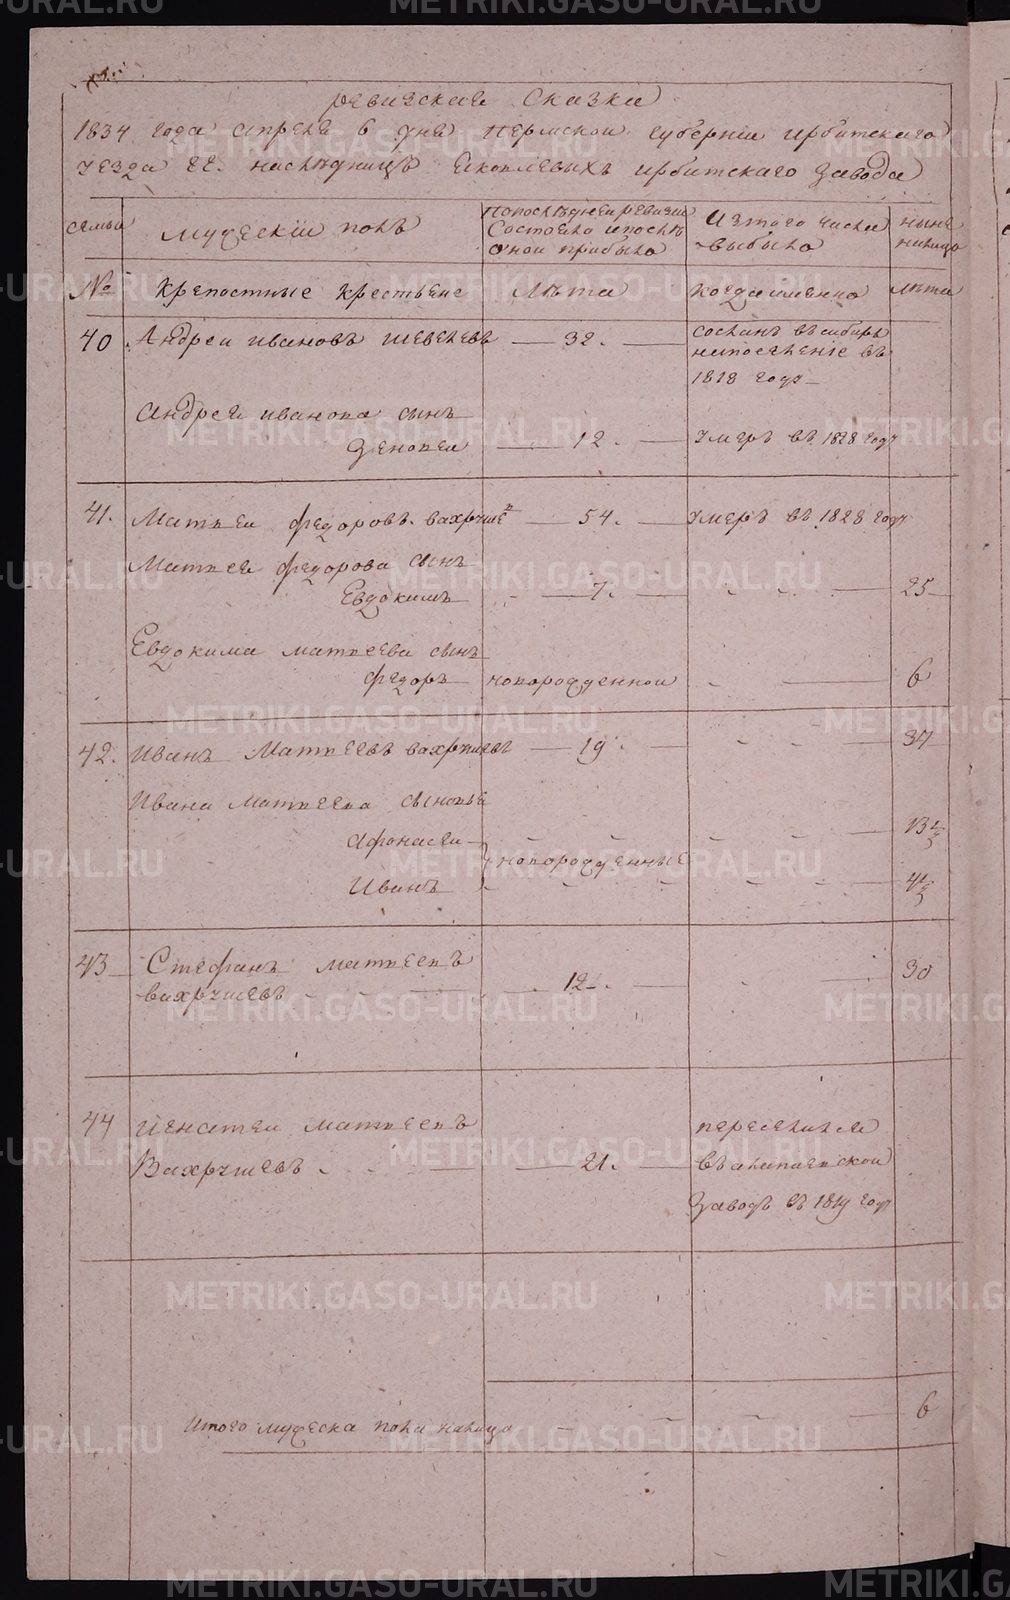 ревизская Сказка
1834 года апреля 6 дня Пермской губернии ирбитскаго
уезда гг. наслѣдницъ Яковлевыхъ ирбитскаго завода
семьи
Мужескiй полъ
По послѣдней ревизiи
Состояло и послѣ
оной прибыло
Изтого числа
выбыло
нынѣ
налицо
№
Крепостные крестьяне
Лѣта
когда именно
лѣта
40
Андрей ивановъ шевелевъ
32.
сосланъ въ сибирь
на поселенiе въ
1818 годе
Андрея иванова сынъ
Зеновей
12.
умеръ въ 1828 году
41.
Матвей федоровъ вахруше
54.
умеръ въ 1828 году
Матвея федорова сынъ
Евдокимъ
7.
25
Евдокима матвеева сынъ
федоръ
новорожденной
6
42.
Иванъ Матвеевъ вахрушевъ
19
37
Ивана матвеева сыновья
Афонасей
13½
новорожденные
Иванъ
4½
43
Стефанъ матвеевъ
вахрушевъ
12
30
44
Игнатей матвеевъ
Вахрушевъ
21.
переселился
въ алапаевской
заводъ въ 1819 году
Итого мужеска пола налицо
6